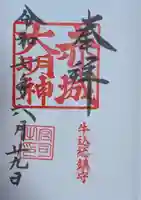 奉拝
赤城
大明神
牛込総鎮守
令和七年八月廿九日